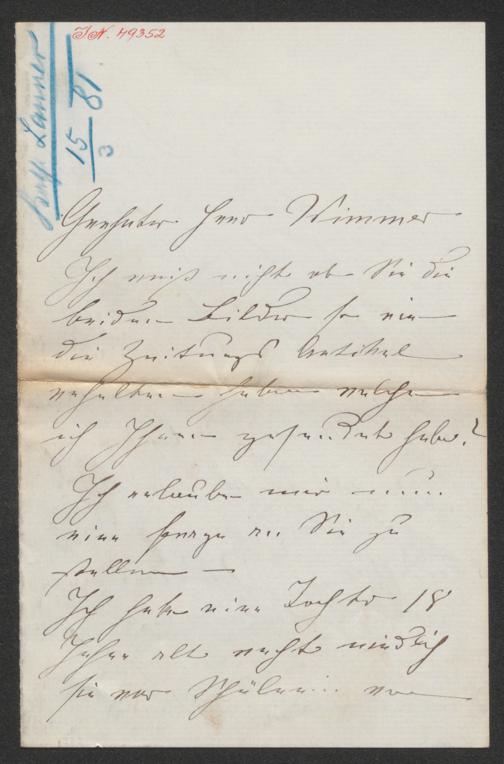 I.N. 49352
Lanner
15/3 81
Geehrter Herr Wimmer
Ich weiß nicht ob Sie die
beiden Bilder so wie
die Zeitungs Artikel
erhalten haben welche
ich Ihnen gesendet habe?
Ich erlaube mir nun
eine Frage an Sie zu
stellen —
Ich habe eine Tochter 18
Jahre alt recht niedlich
sie war Schülerin von